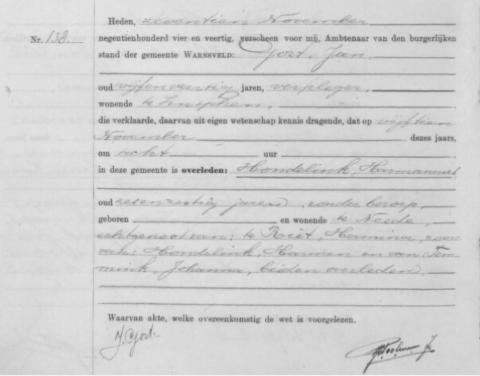 Heden, zeventien November
Nr. 138.
negentienhonderd vier en veertig, verscheen voor mij, Ambtenaar van den burgerlijken
stand der gemeente WARNSVELD: Gort, Jan,
oud vijfenveertig jaren, verpleger,
wonende te Zutphen,
die verklaarde, daarvan uit eigen wetenschap kennis dragende, dat op vijftien
November dezes jaars,
om acht uur
in deze gemeente is overleden: Hondelink, Harmannus
oud zesenzestig jaren, zonder beroep,
geboren en wonende te Neede,
echtgenoot van: te Riet, Hermina, zoon
van: Hondelink, Harmen en van:
Johanna, beiden overleden.
Waarvan akte, welke overeenkomstig de wet is voorgelezen.
J. Gort.